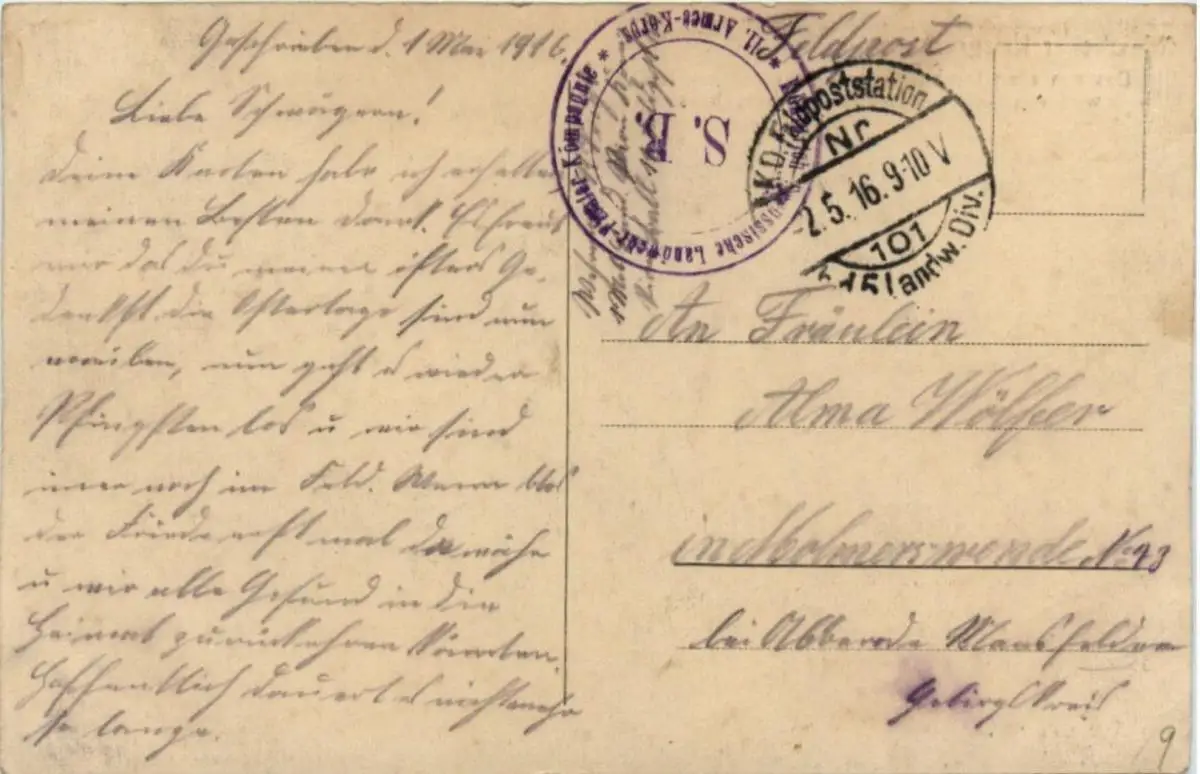 Geschrieben d. 1 Mai 1916.
Liebe Schwägern!
Deine Karten habe ich erhalten
meinen Besten Dank. Es freut
mir das Du meiner öfters Ge-
denkst die Ostertage sind nun
vorüber, nun geht es wieder
Pfingsten los u wir sind
imer noch im Feld. Wenn blos
der Friede erst mal da wähe
u wir alle Gesund in die
Heimat zurückkehren könnten.
Hoffentlich dauert es nicht mehr
so lange.
Feldpost
S. B.
Landwehr-Pionier-Kompagnie * * II. Armee-Korps.
K.D. Feldpoststation
Nr
2.5.16.9-10V
101
Landw. Div.
An Fräulein
Alma Wölfer
in Molmerswende No 43
bei Abberode Mansfelder
Gebirgskreis
9